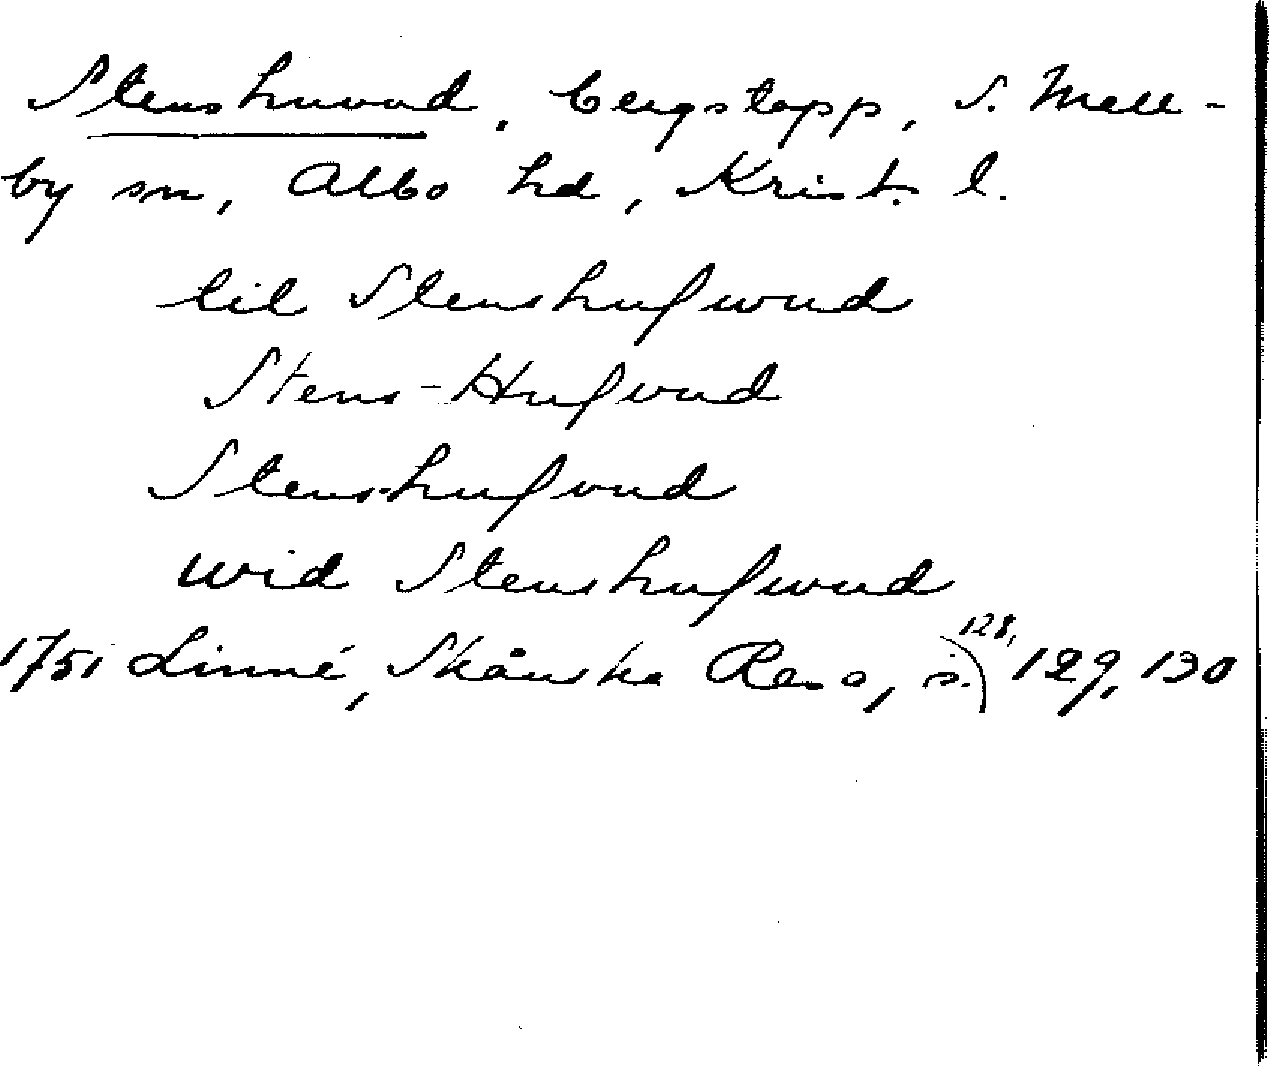 Stenshuvud, bergstopp, S. Mell-
by sn, Albo hd, Krist. l.
til Stenshufwud
Stens-Hufvud
Stenshufvud
wid Stenshufwud
1751 Linné, Skånska Resa, s. 128, 129, 130